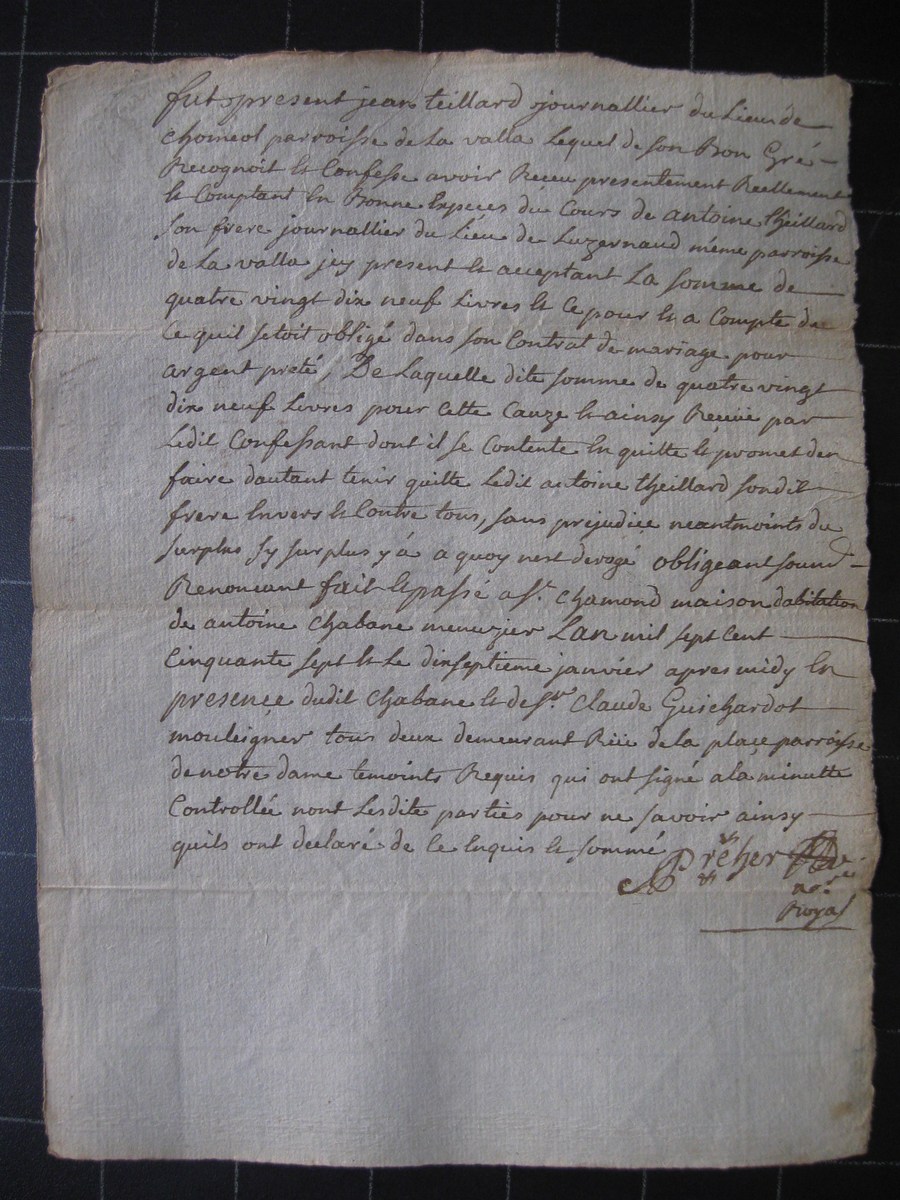 fut present jean teillard journallier du Lieu de
chomeol parroisse de La valla Lequel de son Bon Gré
Recognoit et Confesse avoir Receu presentement Reellement
et Comptant en Bonne Especes du Cours de antoine theillard
Son frere journallier du Lieu de Luzernaud même parroisse
de La valla jcy present et acceptant La somme de
quatre vingt dix neuf Livres et ce pour et a Compte de
Ce quil setoit obligé dans son Contrat de mariage pour
argent preté, De Laquelle dite somme de quatre vingt
dix neuf Livres pour cette Cauze et ainsy Reçüe par
Ledit Confessant dont il se Contente en quitte et promet den
faire dautant tenir quitte Ledit antoine theillard sondit
frere Envers et Contre tous, sans prejudice neantmoints du
surplus sy surplus y à a quoy nest derogé obligeant soumd
Renoncant fait et passé a St. chamond maison dabitation
de antoine Chabane menuzier Lan mil sept Cent
Cinquante sept et Le dixseptieme janvier apres midy En
presence dudit Chabane et de Sr. Claude Guichardot
mouleigner tous deux demeurant Rüe de la place parroisse
de notre dame temoints Requis qui ont signé a la minutte
Controllée nont Lesdite parties pour ne savoir ainsy
quils ont declaré de ce Enquis et sommé
Preher
nore.
Royal